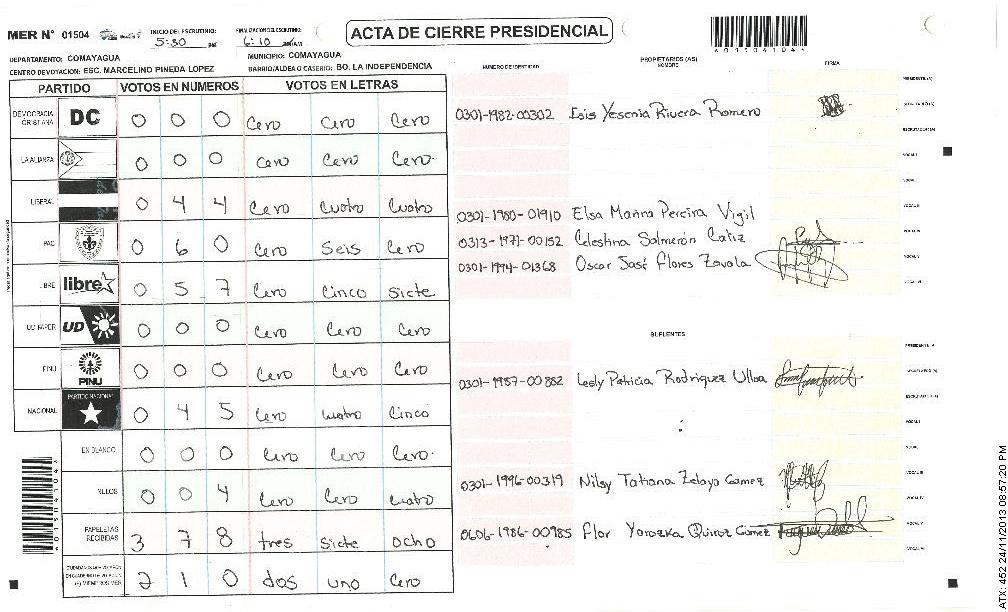 MER N° 01504
INICIO DEL ESCRUTINIO: 5:30 PM
FINALIZACION DEL ESCRUTINIO: 6:10
ACTA DE CIERRE PRESIDENCIAL
DEPARTAMENTO: COMAYAGUA
MUNICIPIO: COMAYAGUA
CENTRO DE VOTACION: ESC. MARCELINO PINEDA LOPEZ
BARRIO/ALDEA O CASERIO: BO. LA INDEPENDENCIA
PARTIDO VOTOS EN NUMEROS VOTOS EN LETRAS
DEMOCRACIA CRISTIANA DC 0 0 0 Cero Cero Cero
LA ALIANZA 0 0 0 Cero Cero Cero
LIBERAL 0 4 4 Cero Cuatro Cuatro
PAC 0 6 0 Cero Seis Cero
LIBRE libre 0 5 7 Cero Cinco Siete
UD FAPER UD 0 0 0 Cero Cero Cero
PINU PINU 0 0 0 Cero Cero Cero
NACIONAL PARTIDO NACIONAL 0 4 5 Cero Cuatro Cinco
EN BLANCO 0 0 0 Cero Cero Cero
NULOS 0 0 4 Cero Cero Cuatro
PAPELETAS RECIBIDAS 3 7 8 tres siete ocho
2 1 0 dos uno Cero
NUMERO DE IDENTIDAD
PROPIETARIOS (AS)
NOMBRE
FIRMA
0301-1982-00302 Isis Yesenia Rivera Romero
0301-1980-01910 Elsa Marina Pereira Vigil
0313-1971-00152 Celestina Salmerón Cáliz
0301-1994-01368 Oscar José Flores Zavala
SUPLENTES
0301-1987-00882 Lesly Patricia Rodriguez Ulloa
0301-1996-00319 Nilsy Tatiana Zelaya Gamez
0606-1986-00985 Flor Yorozka Quiroz Gomez
ATX: 452 24/11/2013 08:57:20 PM